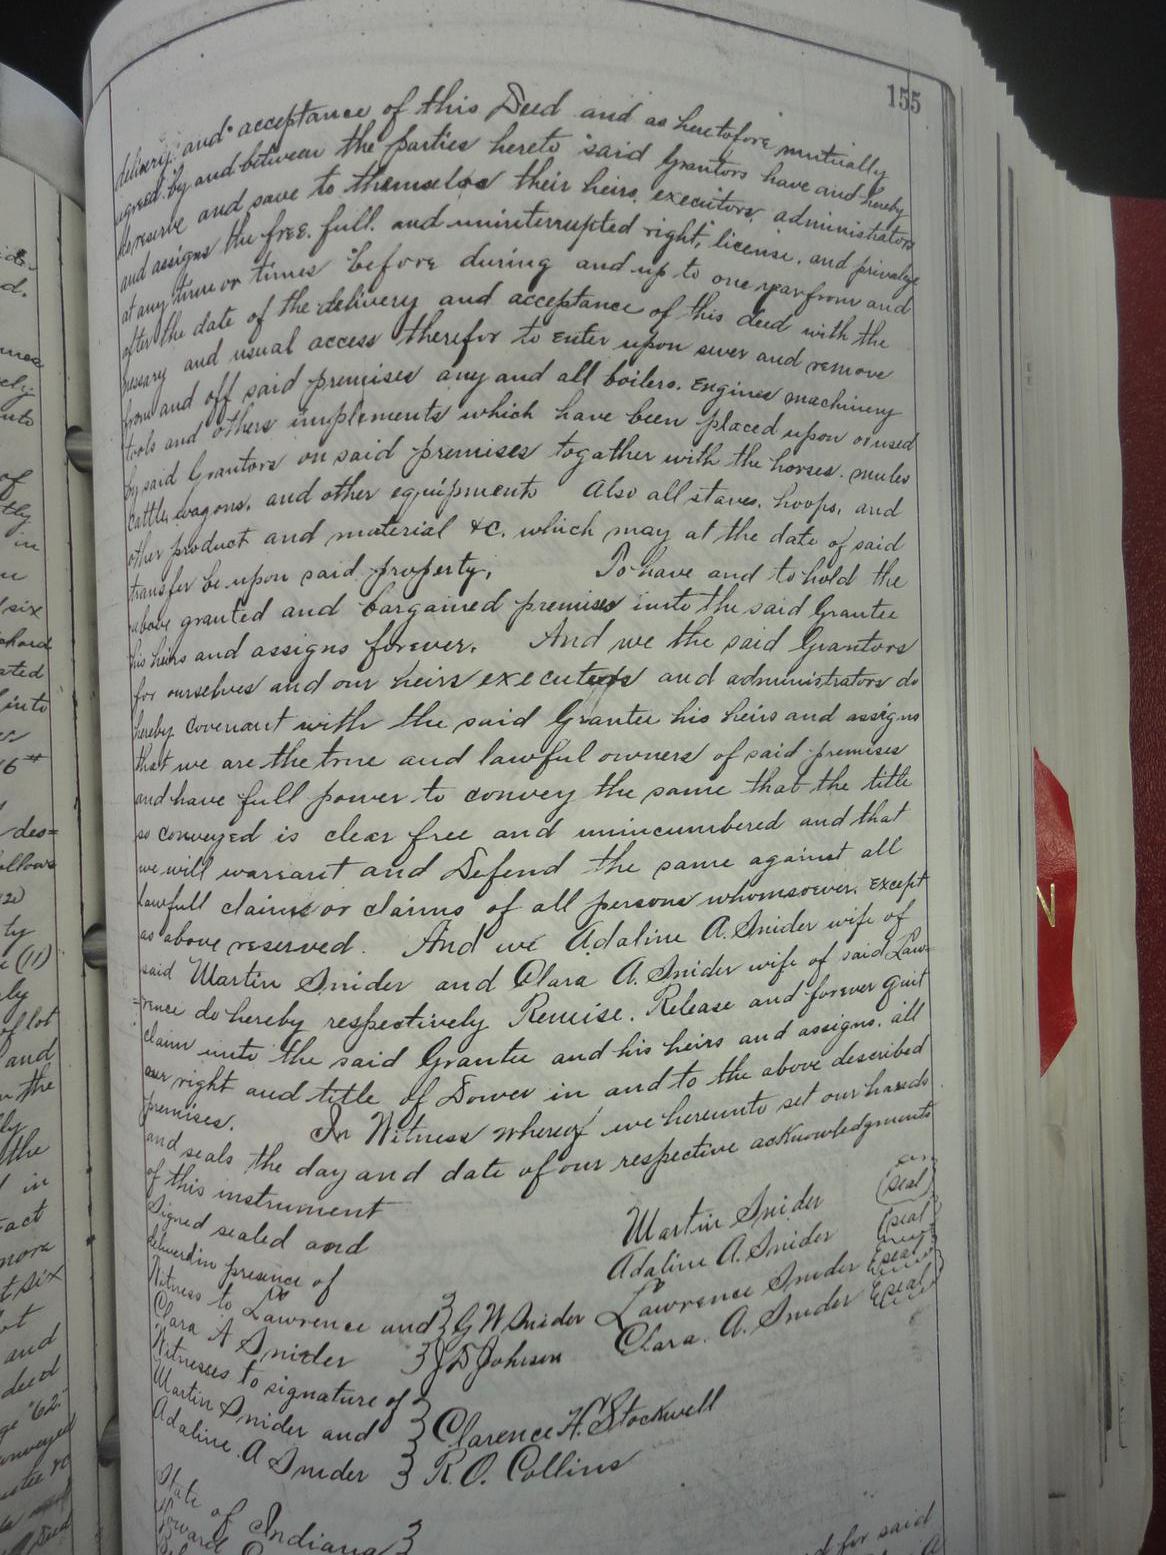 155
delivery and acceptance of this Deed and as heretofore mutually
agreed by and between the parties hereto said Grantors have and hereby
do reserve and save to themselves their heirs, executors, administrators
and assigns the free. full. and uninterrupted right, license. and privalege
at any time or times before during and up to one year from and
after the date of the delivery and acceptance of this deed with the
nessary and usual access therefor to enter upon sever and remove
from and off said premises any and all boilers. Engines machinery
tools and others implements which have been placed upon or used
by said Grantors on said premises togather with the horses. mules
cattle, wagons, and other equipments Also all staves, hoops, and
other product and material &c. which may at the date of said
transfer be upon said property, To have and to hold the
above granted and bargained premises unto the said Grantee
his heirs and assigns forever. And we the said Grantors
for ourselves and our heirs executors and administrators do
hereby covenant with the said Grantee his heirs and assigns
that we are the true and lawful owners of said premises
and have full power to convey the same that the title
so conveyed is clear free and unincumbered and that
we will warrant and Defend the same against all
lawfull claim or claims of all persons whomsoever. Except
as above reserved. And we Adaline A. Snider wife of
said Martin Snider and Clara A. Snider wife of said Law-
=rence do hereby respectively Remise. Release and forever quit
claim unto the said Grantee and his heirs and assigns. all
our right and title of Dower in and to the above described
premises. In Witness whereof we hereunto set our hands
and seals the day and date of our respective acknowledgments
of this instrument
Signed sealed and Martin Snider (seal)
deliverd in presence of Adaline A. Snider (seal)
Witness to Lawrence and } G W Snider Lawrence Snider (seal)
Clara A Snider } J D Johnson Clara. A. Snider (seal)
Witnesses to signature of }
Martin Snider and } Clarence H. Stockwell
Adaline. A Snider } R. O. Collins
State of Indiana }
d for said